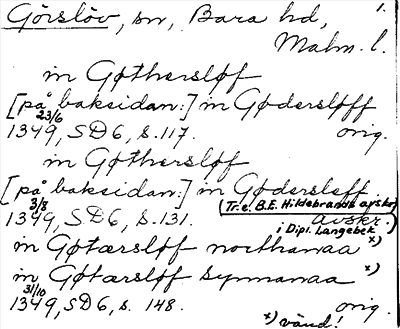 Görslöv, sn, Bara hd, 1.
Malm. l.
in Gøthersløf
[på baksidan:] in Gødersløff
23/6
1349, SD6, s. 117. orig.
in Gøthersløf
[på baksidan:] in Gødersleff
3/8 (Tr. e. B.E. Hildebrands avskr.
1349, SD6, s. 131. avskr.
i Dipl. Langebek)
in Gøtærsløf northanaa x)
in Gøtærsløf synnanaa x)
31/10
1349, SD6, s. 148. orig.
x) vänd!